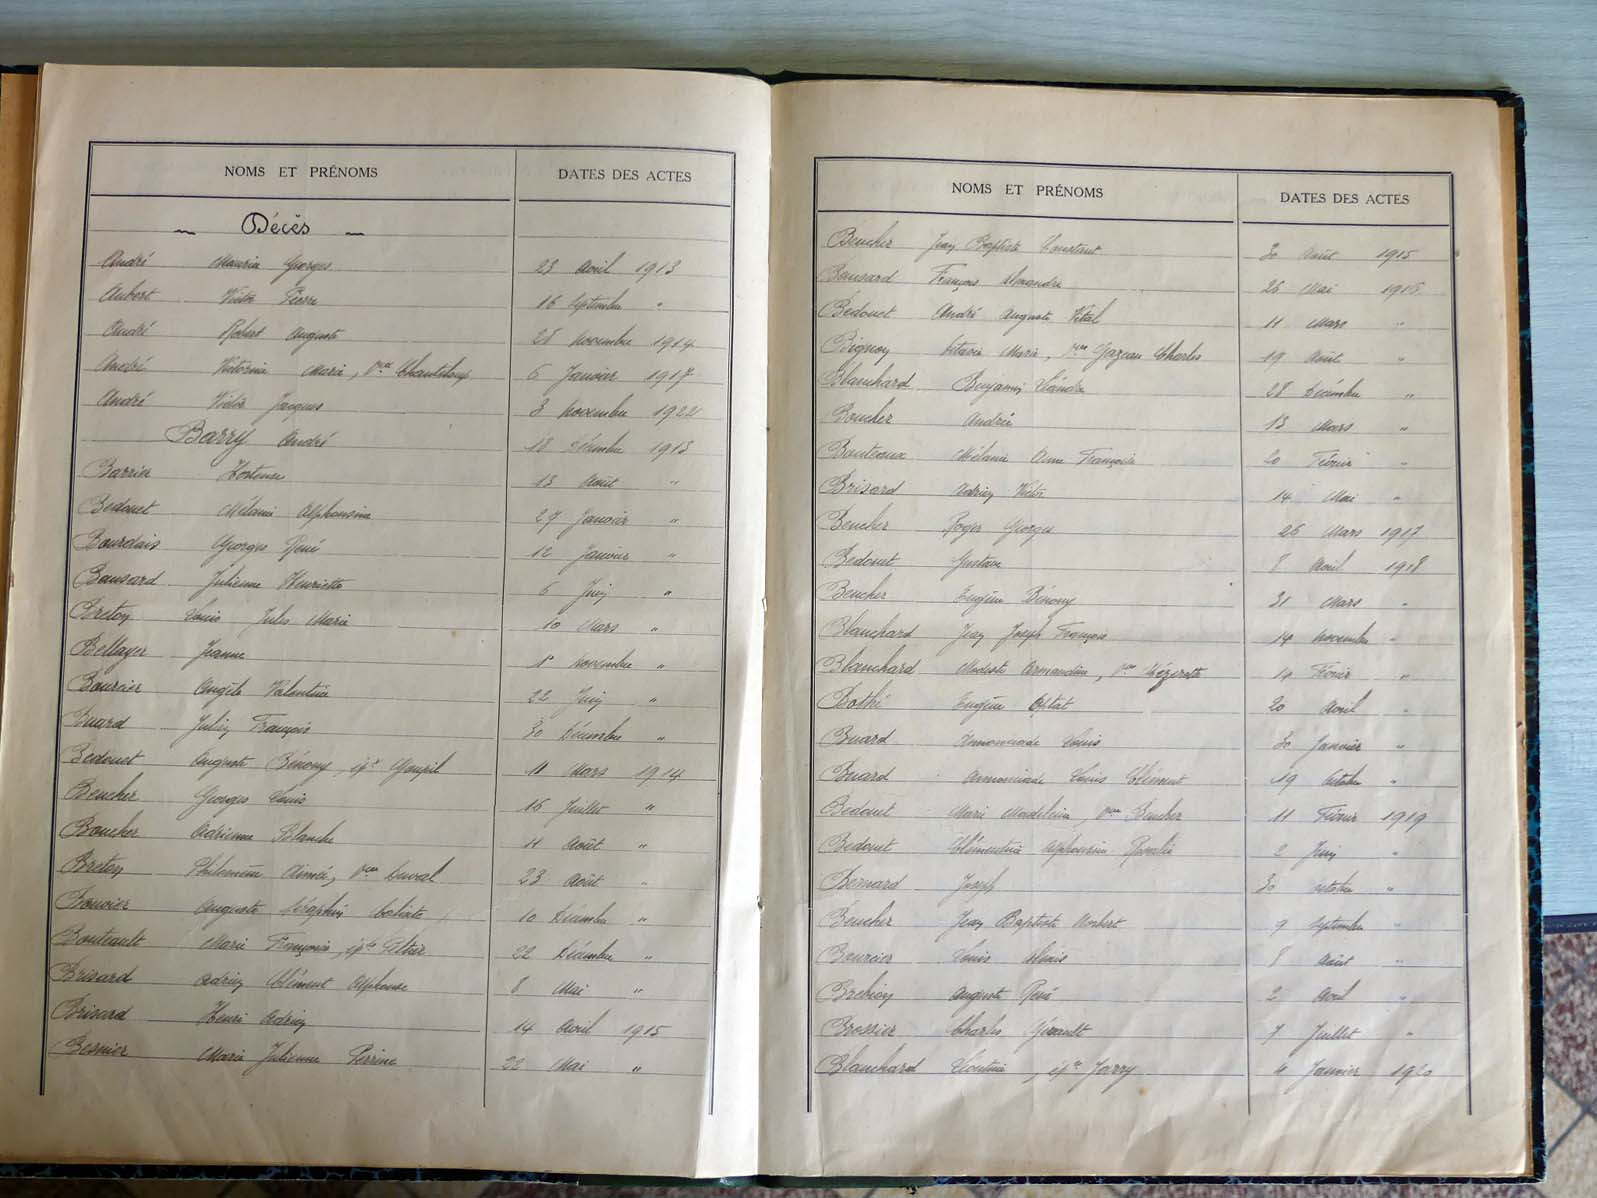 NOMS ET PRÉNOMS DATES DES ACTES
~ Décès ~
André Maurice Georges 23 Avril 1913
Aubert Victor Pierre 16 Septembre "
André Robert Auguste 28 Novembre 1914
André Victorine Marie, Vve Chanteloup 6 Janvier 1917
André Victor Jacques 3 Novembre 1922
Barry André 18 Décembre 1913
Barrier Hortense 13 Août "
Bedouet Mélanie Alphonsine 27 Janvier "
Bourdais Georges René 12 Janvier "
Bansard Julienne Henriette 6 Juin "
Breton Louis Jules Marie 10 Mars "
Beltayer Jeanne Novembre "
Bourcier Angèle Valentine 22 Juin "
Buard Julien François 30 Décembre "
Bedouet Auguste Bénony, Goupil 11 Mars 1914
Beucher Georges Louis 16 Juillet "
Boucher Adrienne Blanche 11 Août "
Breton Philomène Aimée, Vve Duval 23 Août "
Bouvier Auguste Séraphin Calixte 10 Décembre "
Bouteault Marie Françoise, épse 22 Décembre "
Brisard Adrien Clément Alphonse 8 Mai "
Brisard Henri Adrien 14 Avril 1915
Besnier Marie Julienne Perrine 22 Mai "
NOMS ET PRÉNOMS DATES DES ACTES
Beucher Jean Baptiste Constant 30 Août 1915
Bansard François Alexandre 26 Mai 1916
Bedouet André Auguste Vital 11 Mars "
Bignon Marie, Vve Gazeau Charles 19 Août "
Blanchard Benjamin Léandre 28 Décembre "
Boucher André 13 Mars "
Bouteaux Mélanie Anne Françoise 20 Février "
Brisard Adrien Victor 14 Mai "
Beucher Roger Georges 26 Mars 1917
Bedouet Gustave 8 Avril 1918
Beucher Eugène Bénony 31 Mars "
Blanchard Jean Joseph François 14 Novembre "
Blanchard Modeste Armandine, Vve Mézerette 14 Février "
Bothé Eugène Optat 20 Avril "
Buard Louis 30 Janvier "
Buard Louis Clément 19 Octobre "
Bedouet Marie Madeleine, Vve Beucher 11 Février 1919
Bedouet Clémentine Alphonsine Rosalie 2 Juin "
Bernard Joseph 30 Octobre "
Beucher Jean Baptiste Norbert 9 Septembre "
Bourcier Louis Alexis 8 Août "
Brehin Auguste René 2 Avril "
Brossier Charles Gérault 7 Juillet "
Blanchard Léontine, épse Jarry 4 Janvier 1920